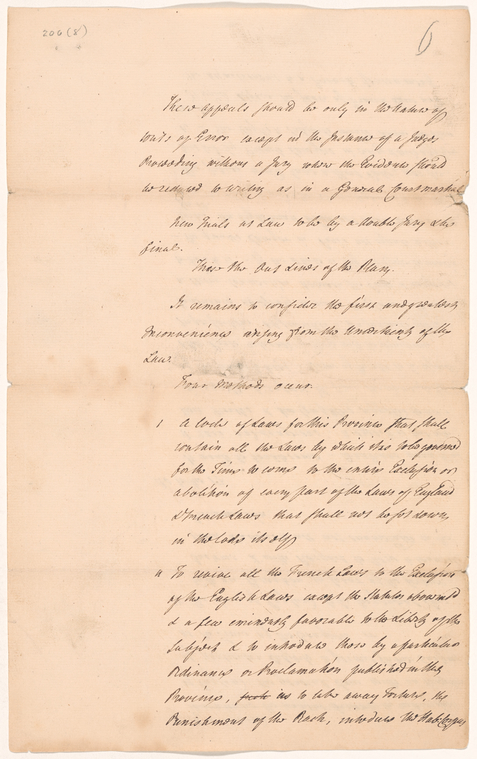 206(8)
6
These appeals should be only in the Nature of
Writs of Error except in the Instance of a Judge
Proceeding without a Jury where the Evidence should
be reduced to writing as in a General Court martial
New Trials at Law to be by a double Jury & be
final.
These the Out Lines of the Plan.
It remains to consider the first and greatest
Inconvenience arising from the Uncertainty of the
Law
Four Methods occur.
1 A Code of Laws for this Province that shall
contain all the Laws by which it is to be governed
for the Time to come to the entire Exclusion or
abolition of every part of the Laws of England
& French Laws that shall not be set down
in the Code itself
11 To revive all the French Laws to the Exclusion
of the English Laws except the Statutes
& a few eminently favorable to the Liberty of the
Subject & to introduce these by a particular
Ordinance or Proclamation published in this
Province, to take away Torture, the
Punishment of the Rack, introduce the Hab: Corpus